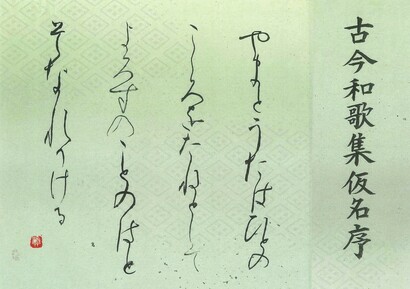 古今和歌集仮名序
やまとうたはひとの
こころをたねとして
よろすのことのはと
そなれりける